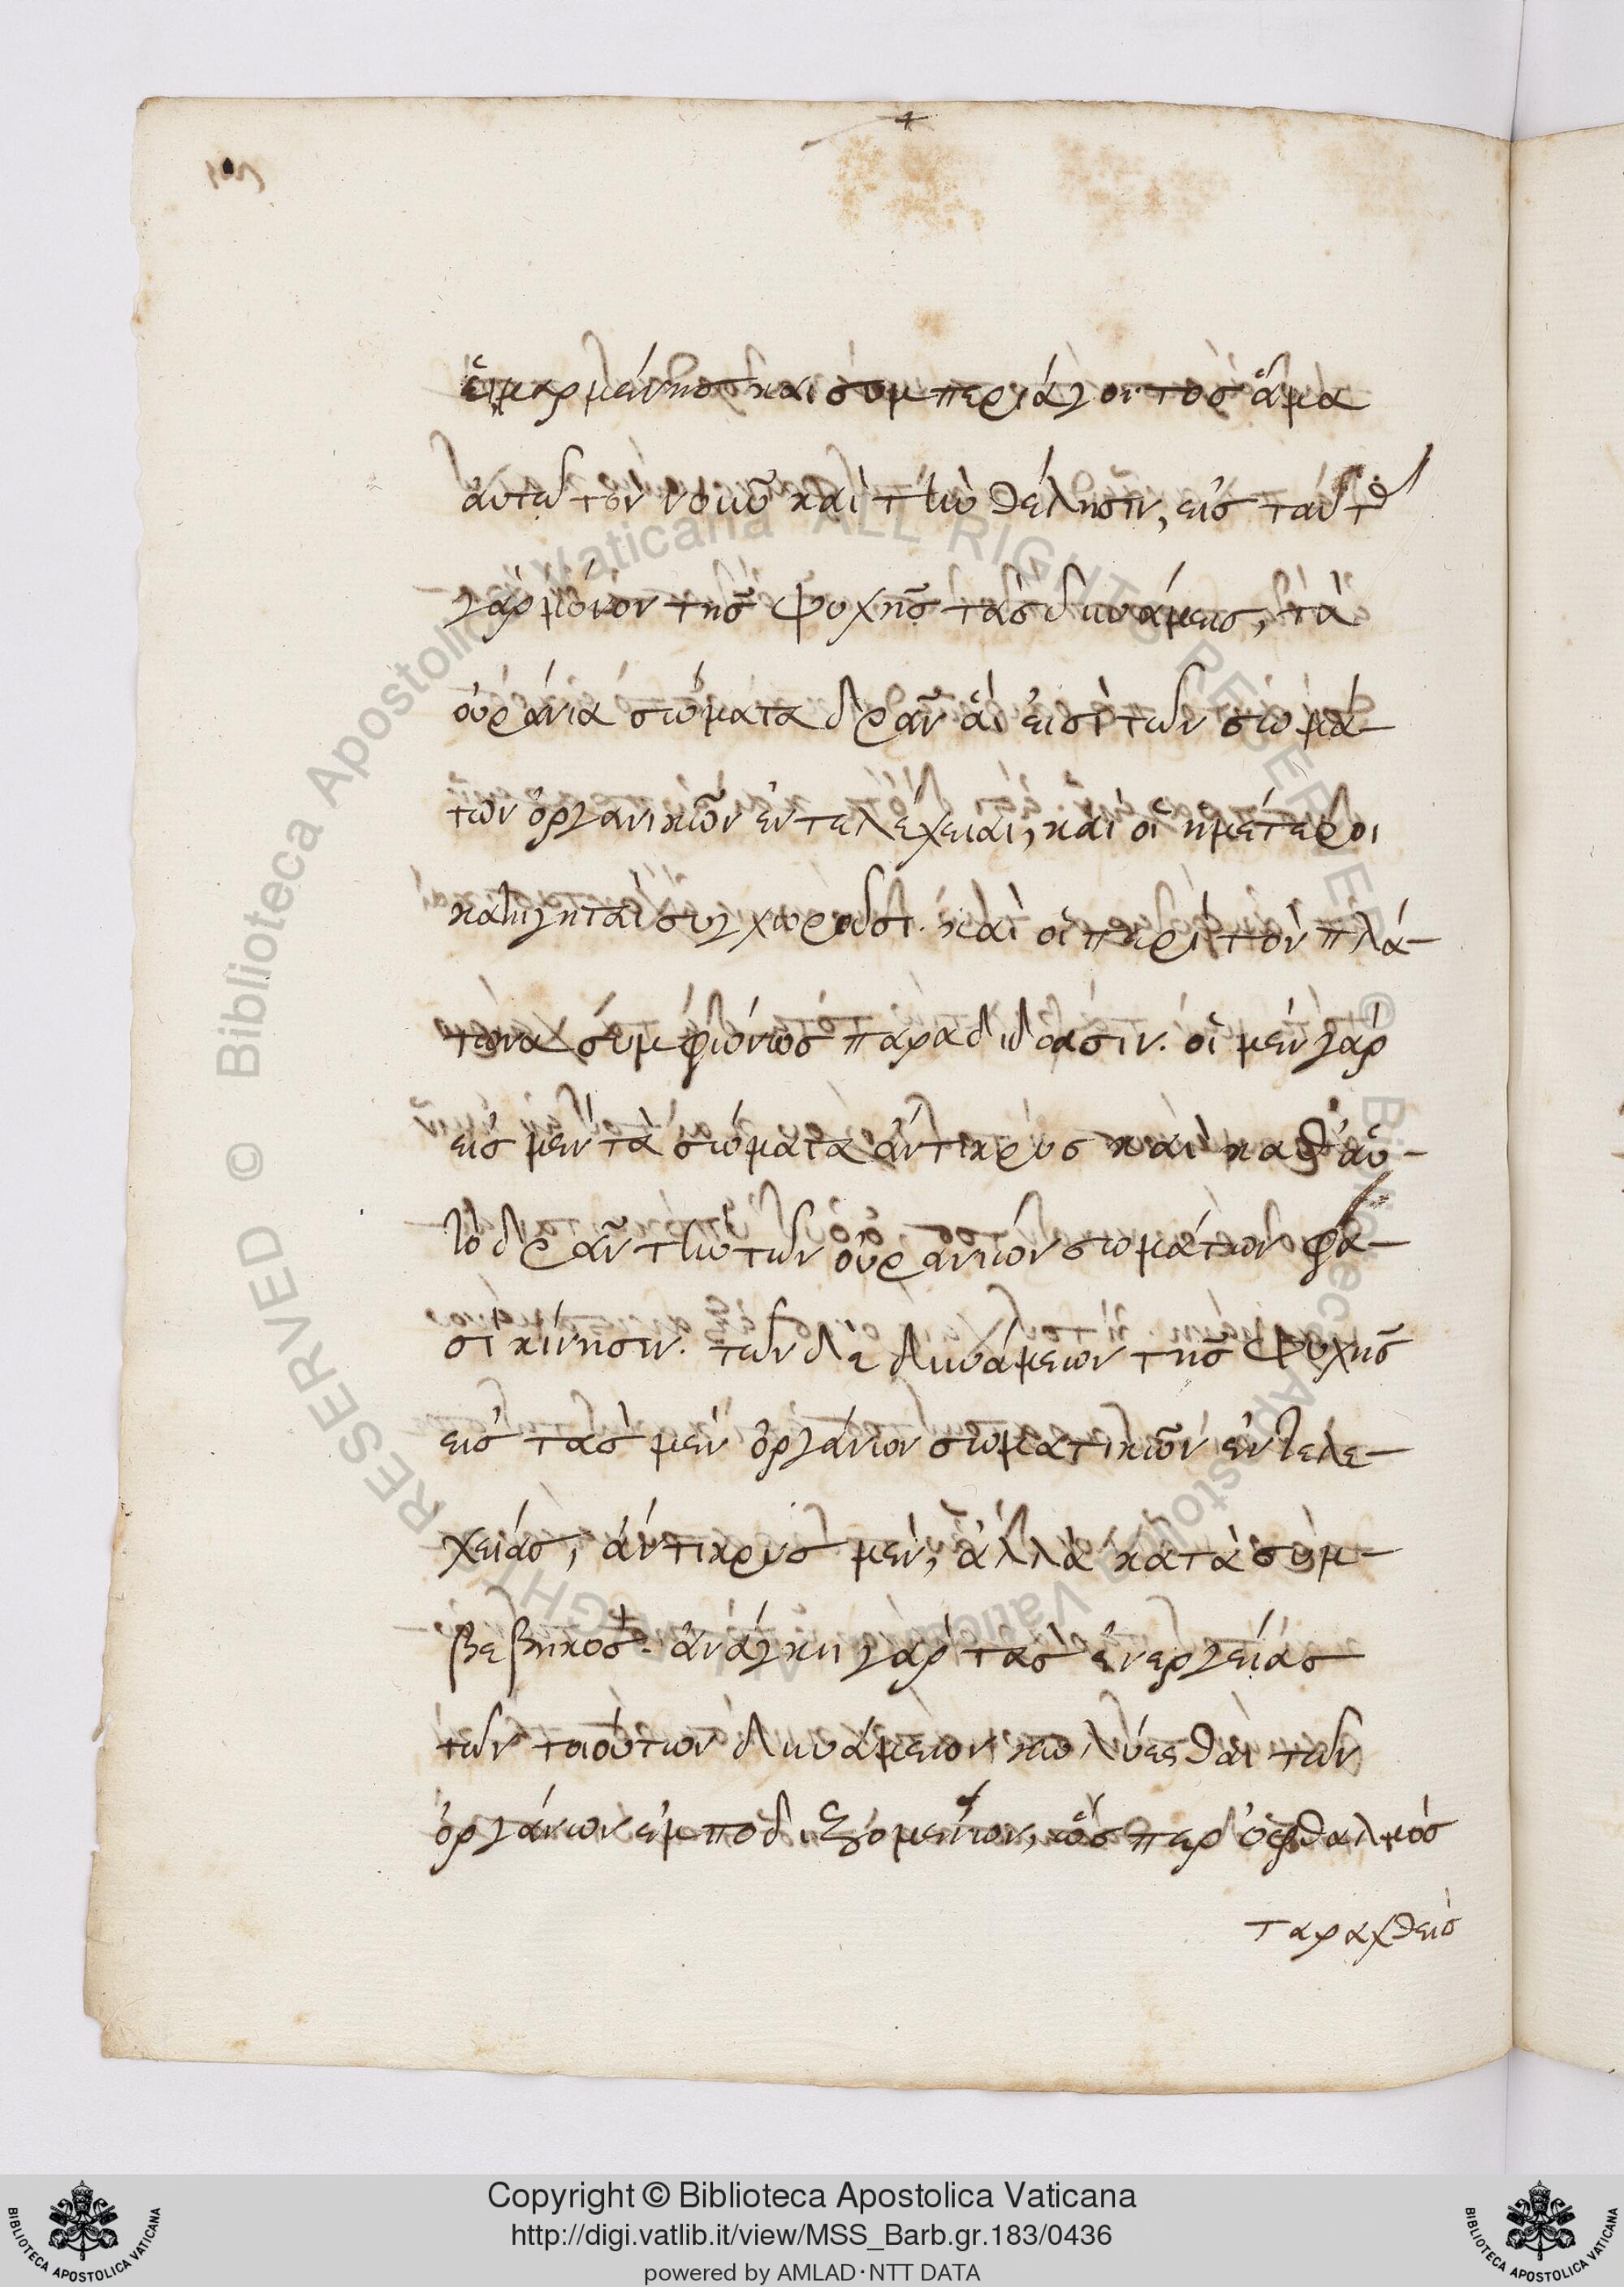 εἱμαρμένης καὶ συμπεριάγοντος ἅμα
αὐτῶ τὸν νοῦν καὶ τὴν θέλησιν, εἰς ταύτ
γὰρ μόνον τῆς ψυχῆς τὰς δυνάμεις, τὰ
οὐράνια σώματα δρᾶν αἵ εἰσὶ τῶν σωμά-
των ὀργανικῶν ἐντελέχειαι, καὶ οἱ ἡμέτεροι
καθηγηταὶ συγχωροῦσι. καὶ οἱ περὶ τὸν πλά-
τωνα συμφώνως παραδιδόασιν. οἱ μὲν γὰρ
εἰς μὲν τὰ σώματα ἄντικρυς καὶ καθ' αὑ-
τὸ δρᾶν τὴν τῶν οὐρανίων σωμάτων φα-
σὶ κίνησιν. τῶν δὲ δυνάμεων τῆς ψυχῆς
εἰς τὰς μὲν ὀργάνων σωματικῶν ἐντελε-
χείας, ἄντικρυς μὲν, ἀλλὰ κατὰ συμ-
βεβηκός. ἀνάγκη γὰρ τὰς ἐνεργείας
τῶν τοιούτων δυνάμεων κωλύεσθαι τῶν
ὀργάνων ἐμποδιζομένων, ὥσπερ ὀφθαλμὸς
ταραχθεὶς
Copyright © Biblioteca Apostolica Vaticana
http://digi.vatlib.it/view/MSS_Barb.gr.183/0436
powered by AMLAD·NTT DATA
BIBLIOTECA APOSTOLICA VATICANA
BIBLIOTECA APOSTOLICA VATICANA
© Biblioteca Apostolica Vaticana ALL RIGHTS RESERVED
© Biblioteca Apostolica Vaticana ALL RIGHTS RESERVED